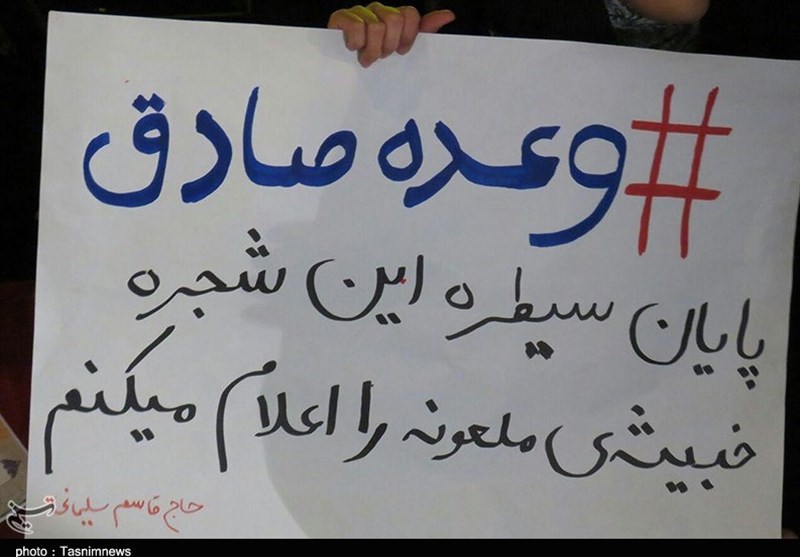 #وعده صادق
پایان سیطره این شجره
خبیثه‌ی ملعونه را اعلام میکنم
حاج قاسم سلیمانی
photo : Tasnimnews